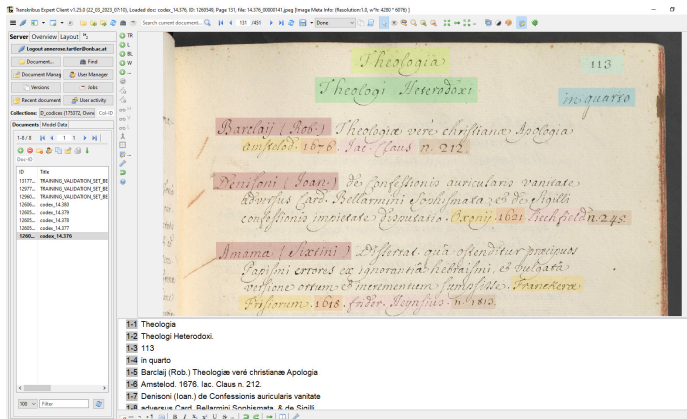 Transkribus Expert Client v1.25.0 (22_03_2023_07:10), Loaded doc: codex_14.376, ID: 1260349, Page 131, file: 14.376_00000141.jpeg [Image Meta Info: (Resolution:1.0, w*h: 4280 * 6076) ]
Search current document...
131 /451
Done
Server Overview Layout
Logout annerose.tartler@onb.ac.at
Document...
Find
Document Manag
User Manager
Versions
Jobs
Recent document
User activity
Collections:
Col-ID
Documents Model Data
1-8 / 8
1 1
Doc-ID
ID Title
13177... TRAINING_VALIDATION_SET_BE
12977... TRAINING_VALIDATION_SET_BE
12980... TRAINING_VALIDATION_SET_BE
12606... codex_14.380
12605... codex_14.379
12605... codex_14.378
12605... codex_14.377
1260... codex_14.376
100 Filter
TR
L
BL
W
Theologia
113
Theologi Heterodoxi
in quarto
Barclaij (Rob.) Theologiæ veré christianæ Apologia
Amstelod. 1676. Iac. Claus n. 212.
Denisoni (Ioan.) de Confessionis auricularis vanitate
adversus Card. Bellarmini Sophismata, & de Sigilli
confessionis impietate disputatio. Oxonij. 1621. Lichfield n. 245.
Amama (Sixtini) Dissertat. quâ ostenditur præcipuos
Papismi errores ex ignorantiâ hebraismi, et vulgatâ
versione ortum & incrementum sumpsisse. Franekeræ
Frisiorum. 1618. Heynsius. n. 1812.
1-1 Theologia
1-2 Theologi Heterodoxi.
1-3 113
1-4 in quarto
1-5 Barclaij (Rob.) Theologiæ veré christianæ Apologia
1-6 Amstelod. 1676. Iac. Claus n. 212.
1-7 Denisoni (Ioan.) de Confessionis auricularis vanitate
1-8 adversus Card. Bellarmini Sophismata, & de Sigilli